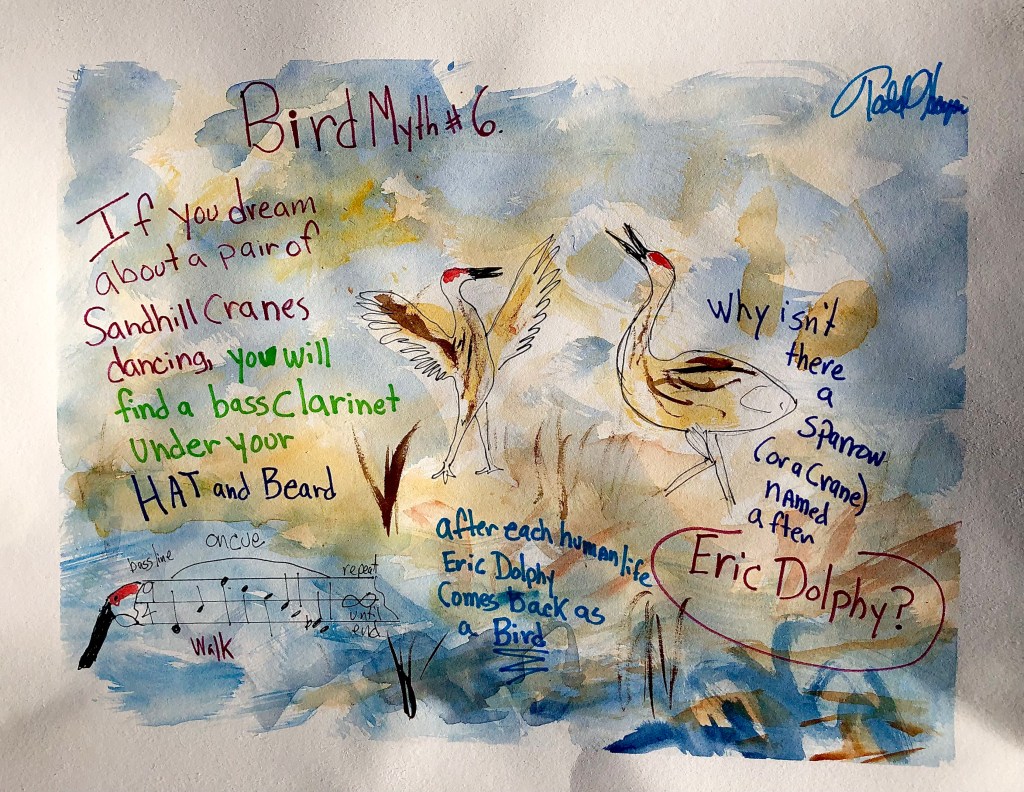 Bird Myth #6.
If you dream
about a pair of
Sandhill Cranes
dancing, you will
find a bass clarinet
under your
HAT and Beard
Why isn't
there
a
sparrow
(or a Crane)
NAMED
after
Eric Dolphy?
after each human life
Eric Dolphy
Comes back as
a Bird
bass line
on cue
repeat
until
end
Walk